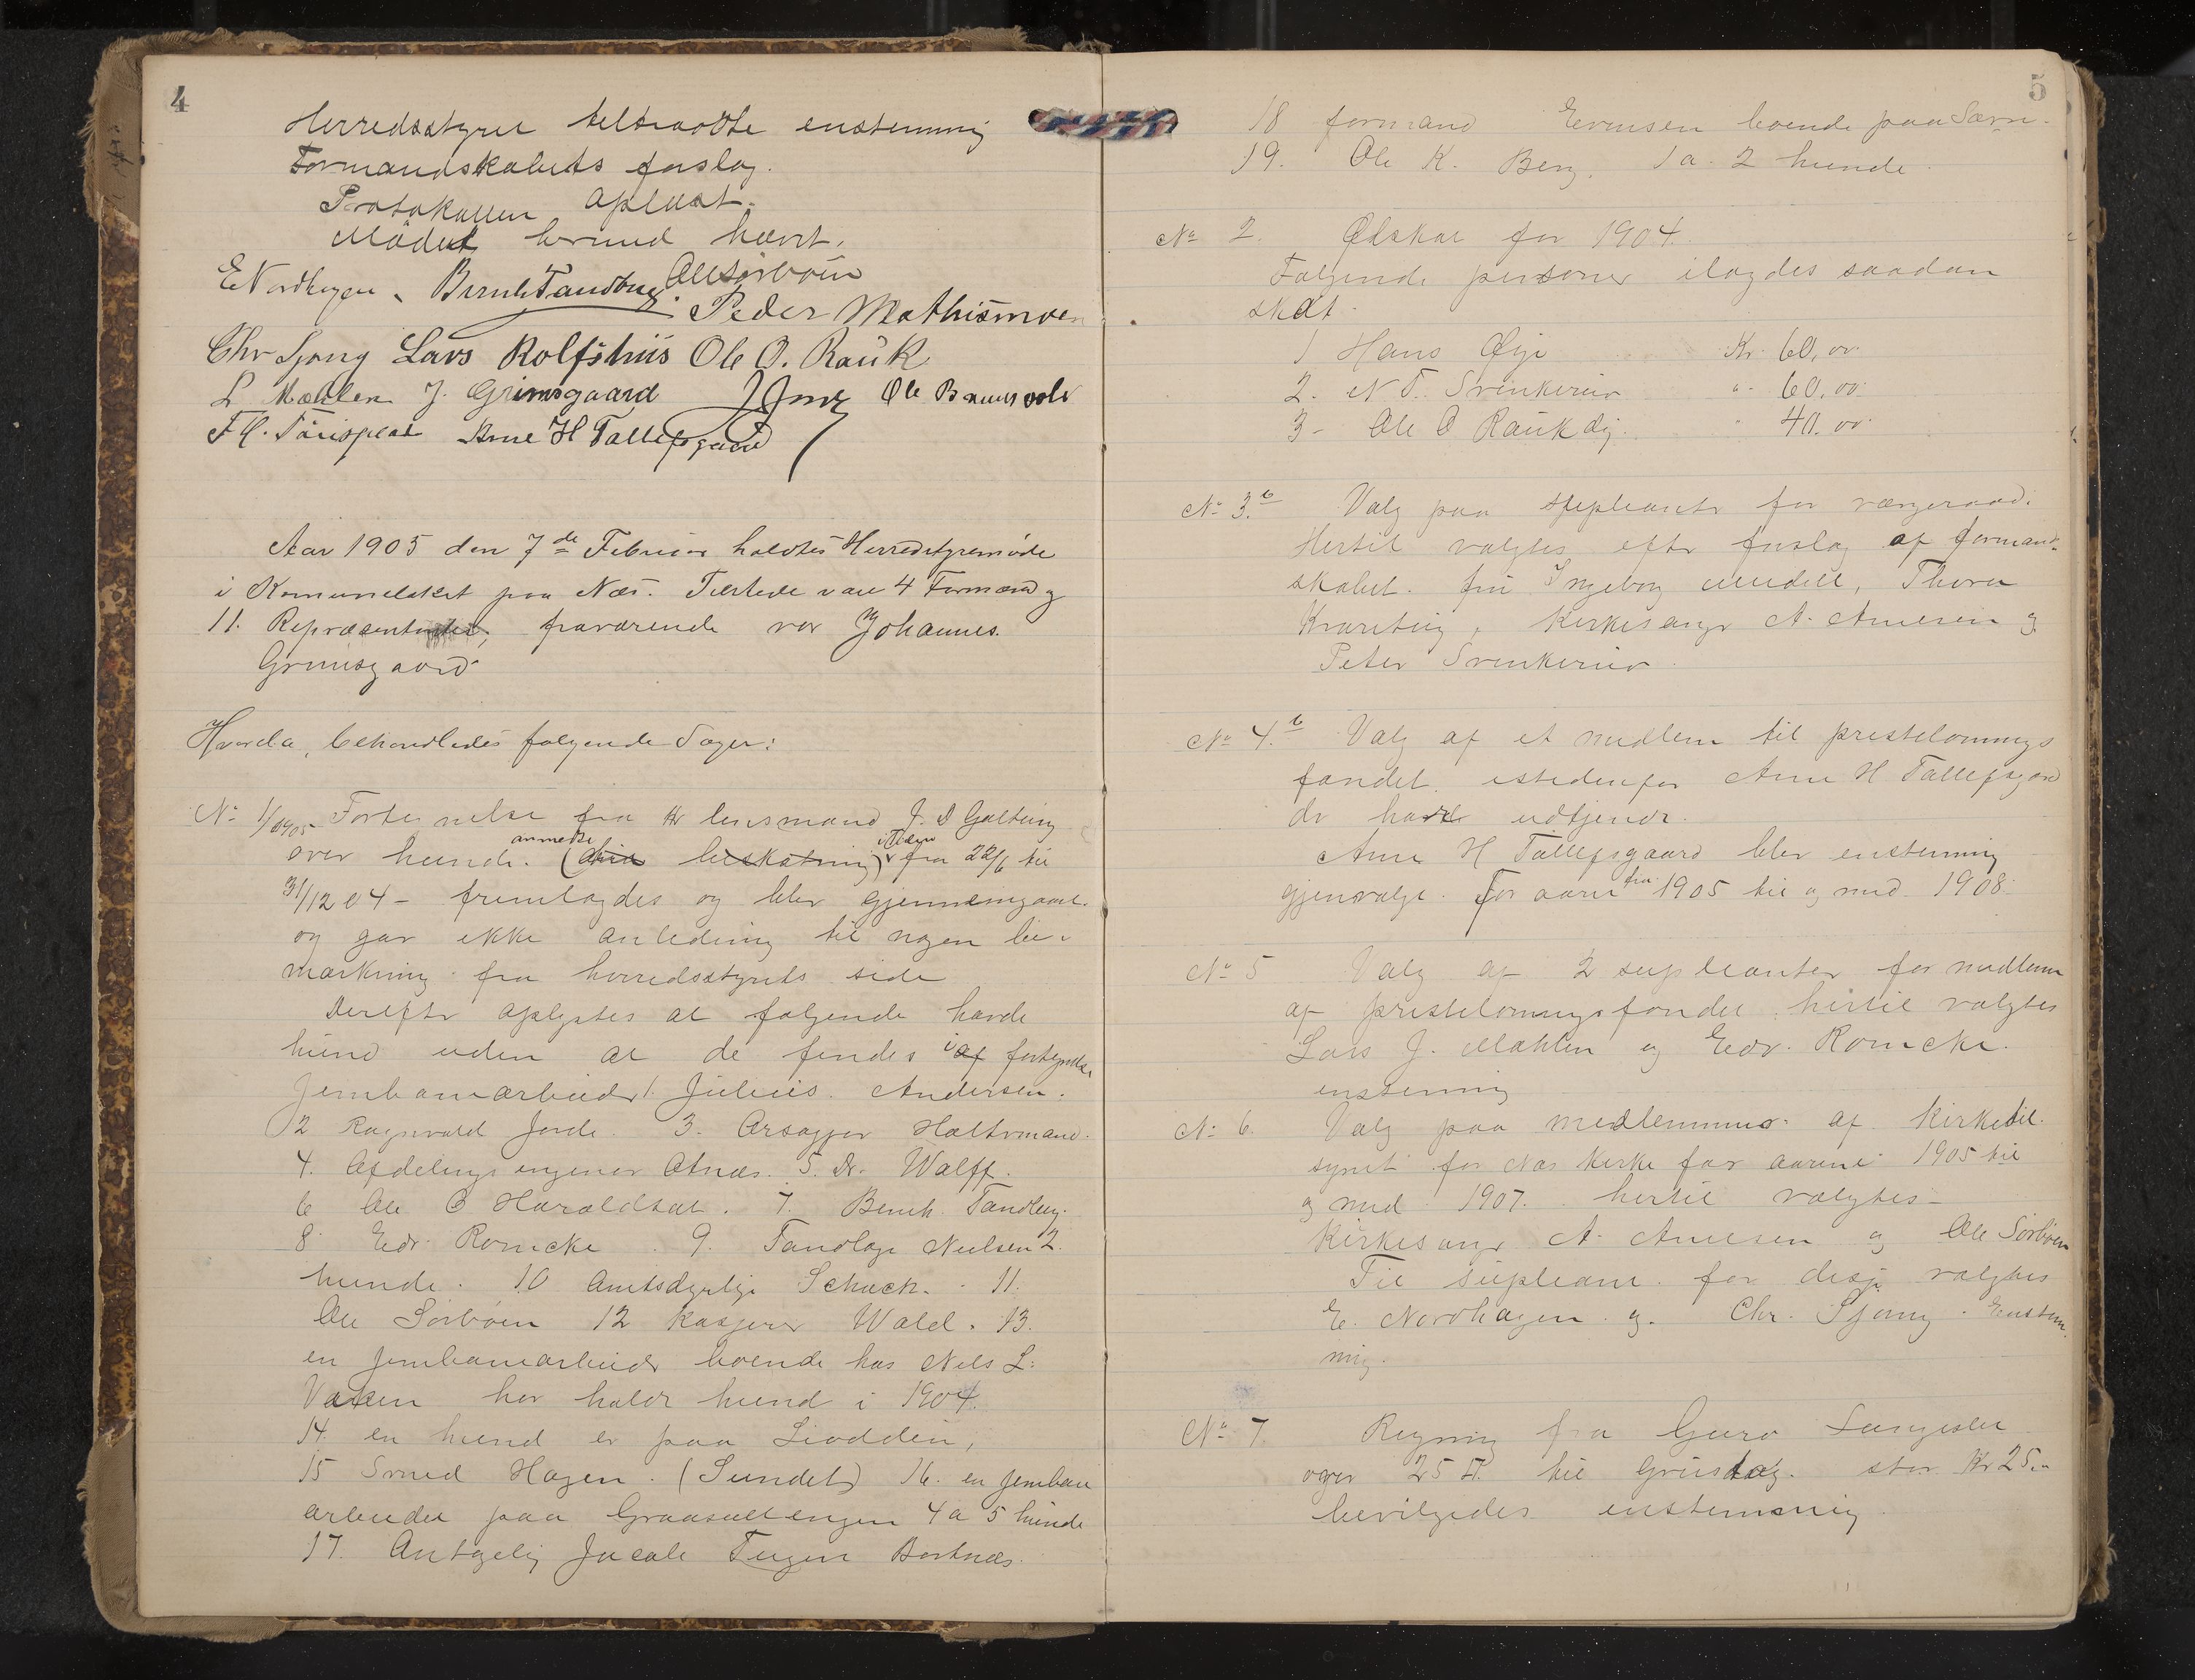 4
Herredsstyret tiltraadte enstemmig
Formandskabets forslag.
Protokollen oplæst.
Mödet hermed hævet.
E Nordhagen. Bernh Tandberg. Ole Sørbøen
Peder Mathismoen
Chr Sjong Lars Rolfshus Ole O. Rauk
L Mæhlen J. Grimsgaard Ole
Arne H Tollefsgaard
Aar 1905 den 7de Februar holdtes Herredstyremöde
i Komunelokalet paa Næs. Tilstede vare 4 Formænd og
11. Repræsentanter, fraværende var Johannes.
Grimsgaard
Hvorda, behandledes følgende Sager:
No 1/1905 Fortegnelse fra Hr lensmand J. D Gulting
over hunde. (anmeldte beskatning) i Tiden fra 22/6 til
31/12 04 – fremlagdes og blev gjennemgaaet.
og gav ikke anledning til nogen be-
mærkning fra herredsstyrets side
Derefter oplystes at følgende havde
hund uden at de findes i af fortegnelse
Jernbanearbeider 1. Julius. Andersen.
2 Ragnvald Jorde. 3. Orsagfør Holtermand.
4. Afdelings ingeniør Otnæs. 5. Dr. Wolff.
6 Ole O Haraldset. 7. Bernh. Tandberg.
8 Edv. Romcke. 9. Tandlæge Nielsen 2.
hunde. 10 Amtsdyrlæge Schack. 11.
Ole Sørbøen 12 Kasserer Wold. 13.
en jernbanearbeider boende hos Nils L.
Vaden har holdt hund i 1904.
14. en hund er paa Liodden,
15 Svend Hagen. (Sundet) 16. en jernbane
arbeider paa Graasætengen 4 a 5 hunde
17. Jacob Bortnæs.
5
18 formand Evensen boende paa
19. Ole K. Berg. 1 a. 2 hunde.
No 2. Ølskat for 1904.
Følgende personer ilagdes saadan
skat.
1 Hans Øye Kr. 60,00
2. N T. Svenkerud " 60,00
3 – Ole O Rauk dy. " 40.00
No 3. Valg paa supleanter for værgeraad.
Hertil valgtes efter forslag af formand-
skabet. fru Ingeborg Thora
Kirkesanger A. Arnesen og
Peter Svenkerud.
No 4. Valg af et medlem til prestelønnings
fondet. istedenfor Arne H Tollefsgaard
der havde udtjendt.
Arne H Tollefsgaard blev enstemmig
gjenvalgt. for aarene fra 1905 til og med 1908.
No 5 Valg af 2 supleanter for medlem
af prestelønningsfondet hertil valgtes
Lars J. Mæhlen og Edv. Romcke.
enstemmig
No 6. Valg paa medlemmer af Kirketil
synet for Næs Kirke for aarene 1905 til
og med 1907. hertil valgtes –
Kirkesanger A. Arnesen og Ole Sørbøen
Til supleant for disse valgtes
E. Nordhagen og Chr. Sjong. Enstem
mig.
No 7. Regning fra Guro
over 25 til Grustag. stor Kr 25,00
bevilgedes enstemmig